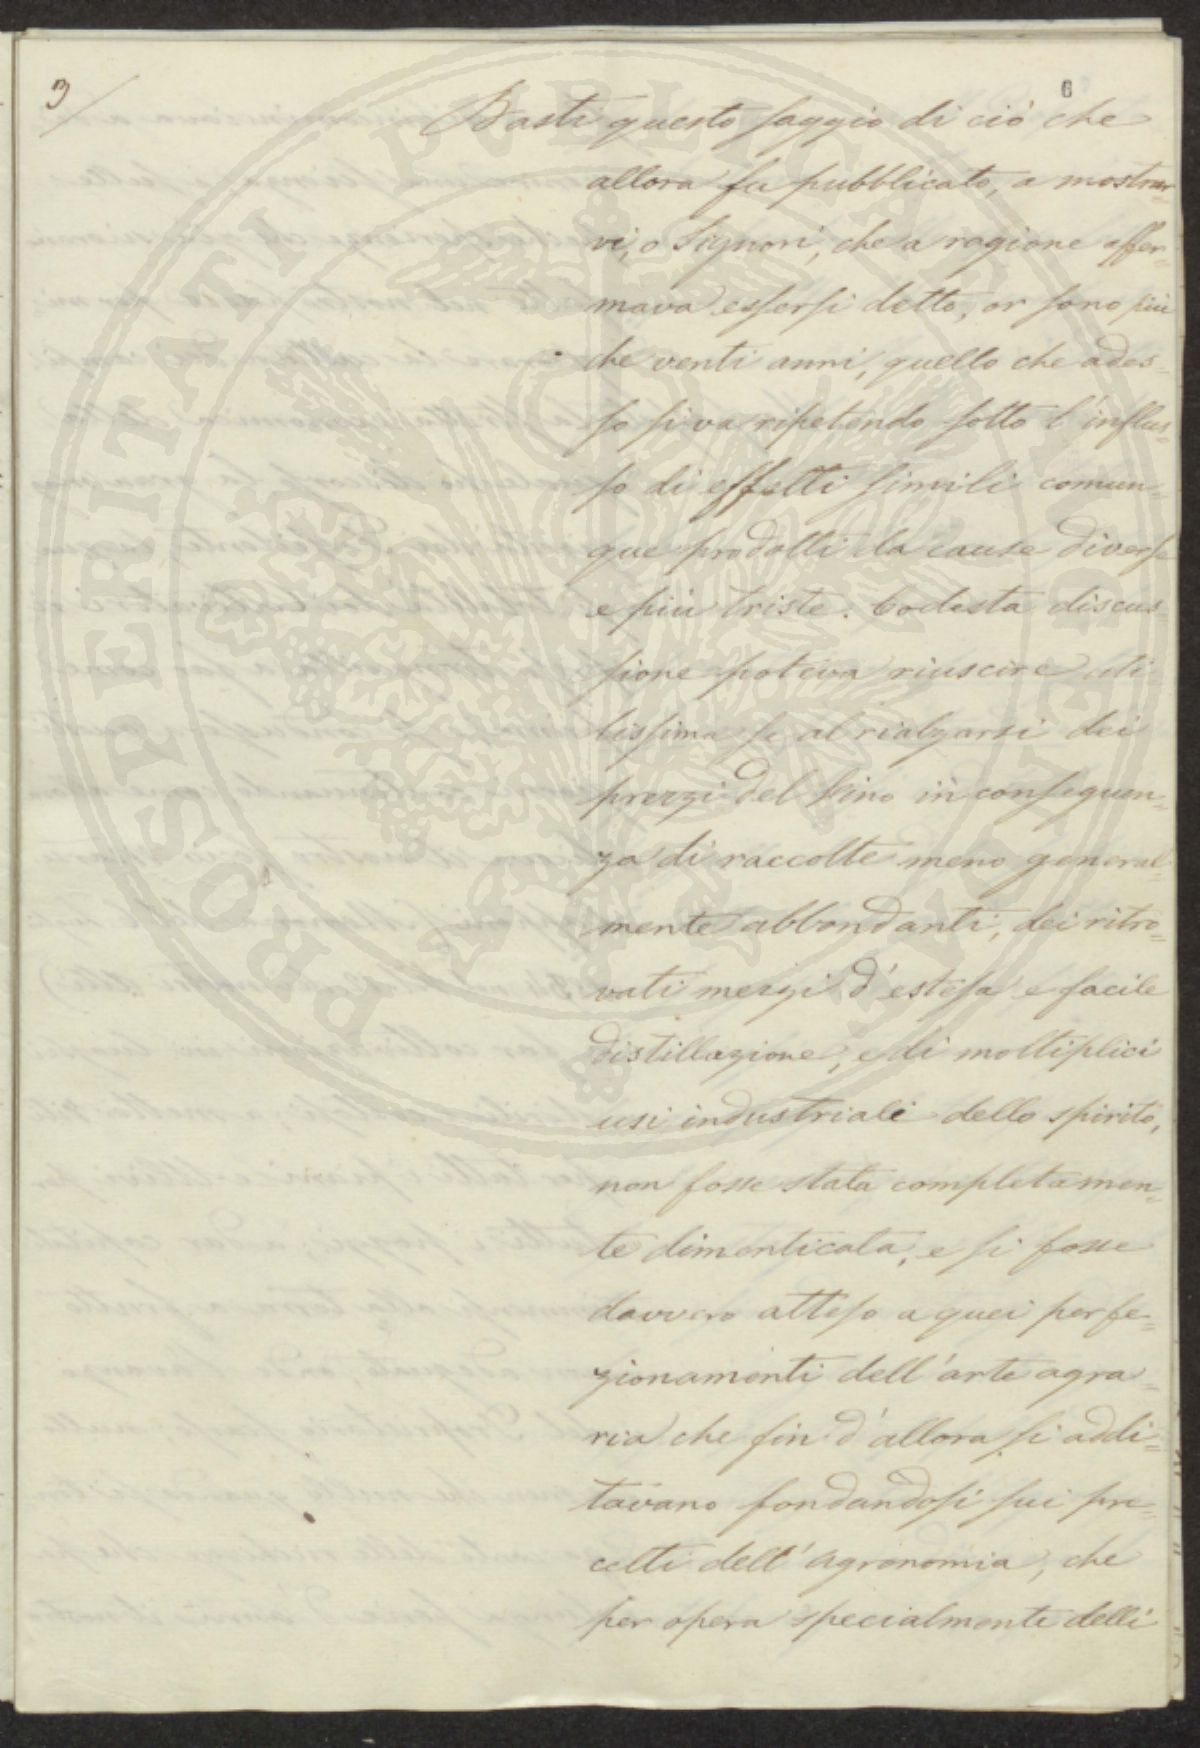 3/
6
Basti questo saggio di ciò che
allora fu pubblicato, a mostrar
vi, o Signori, che a ragione affer=
mava essersi detto, or sono più
che venti anni, quello che ades=
so si va ripetendo sotto l'influs=
so di effetti simili comun=
que prodotti da cause diverse
e più triste. Codesta discus=
sione poteva riuscire uti
lissima se al rialzarsi dei
prezzi del vino in conseguen=
za di raccolte meno general=
mente abbondanti, dei ritro=
vati mezzi d'estesa e facile
distillazione, e di moltiplici
usi industriali dello spirito,
non fosse stata completamen=
te dimenticata, e si fosse
davvero atteso a quei perfe=
zionamenti dell'arte agra=
ria che fin d'allora si addi=
tavano fondandosi sui pre=
cetti dell'agronomia, che
per opera specialmente delli
PROSPERITATI PVBLICAE